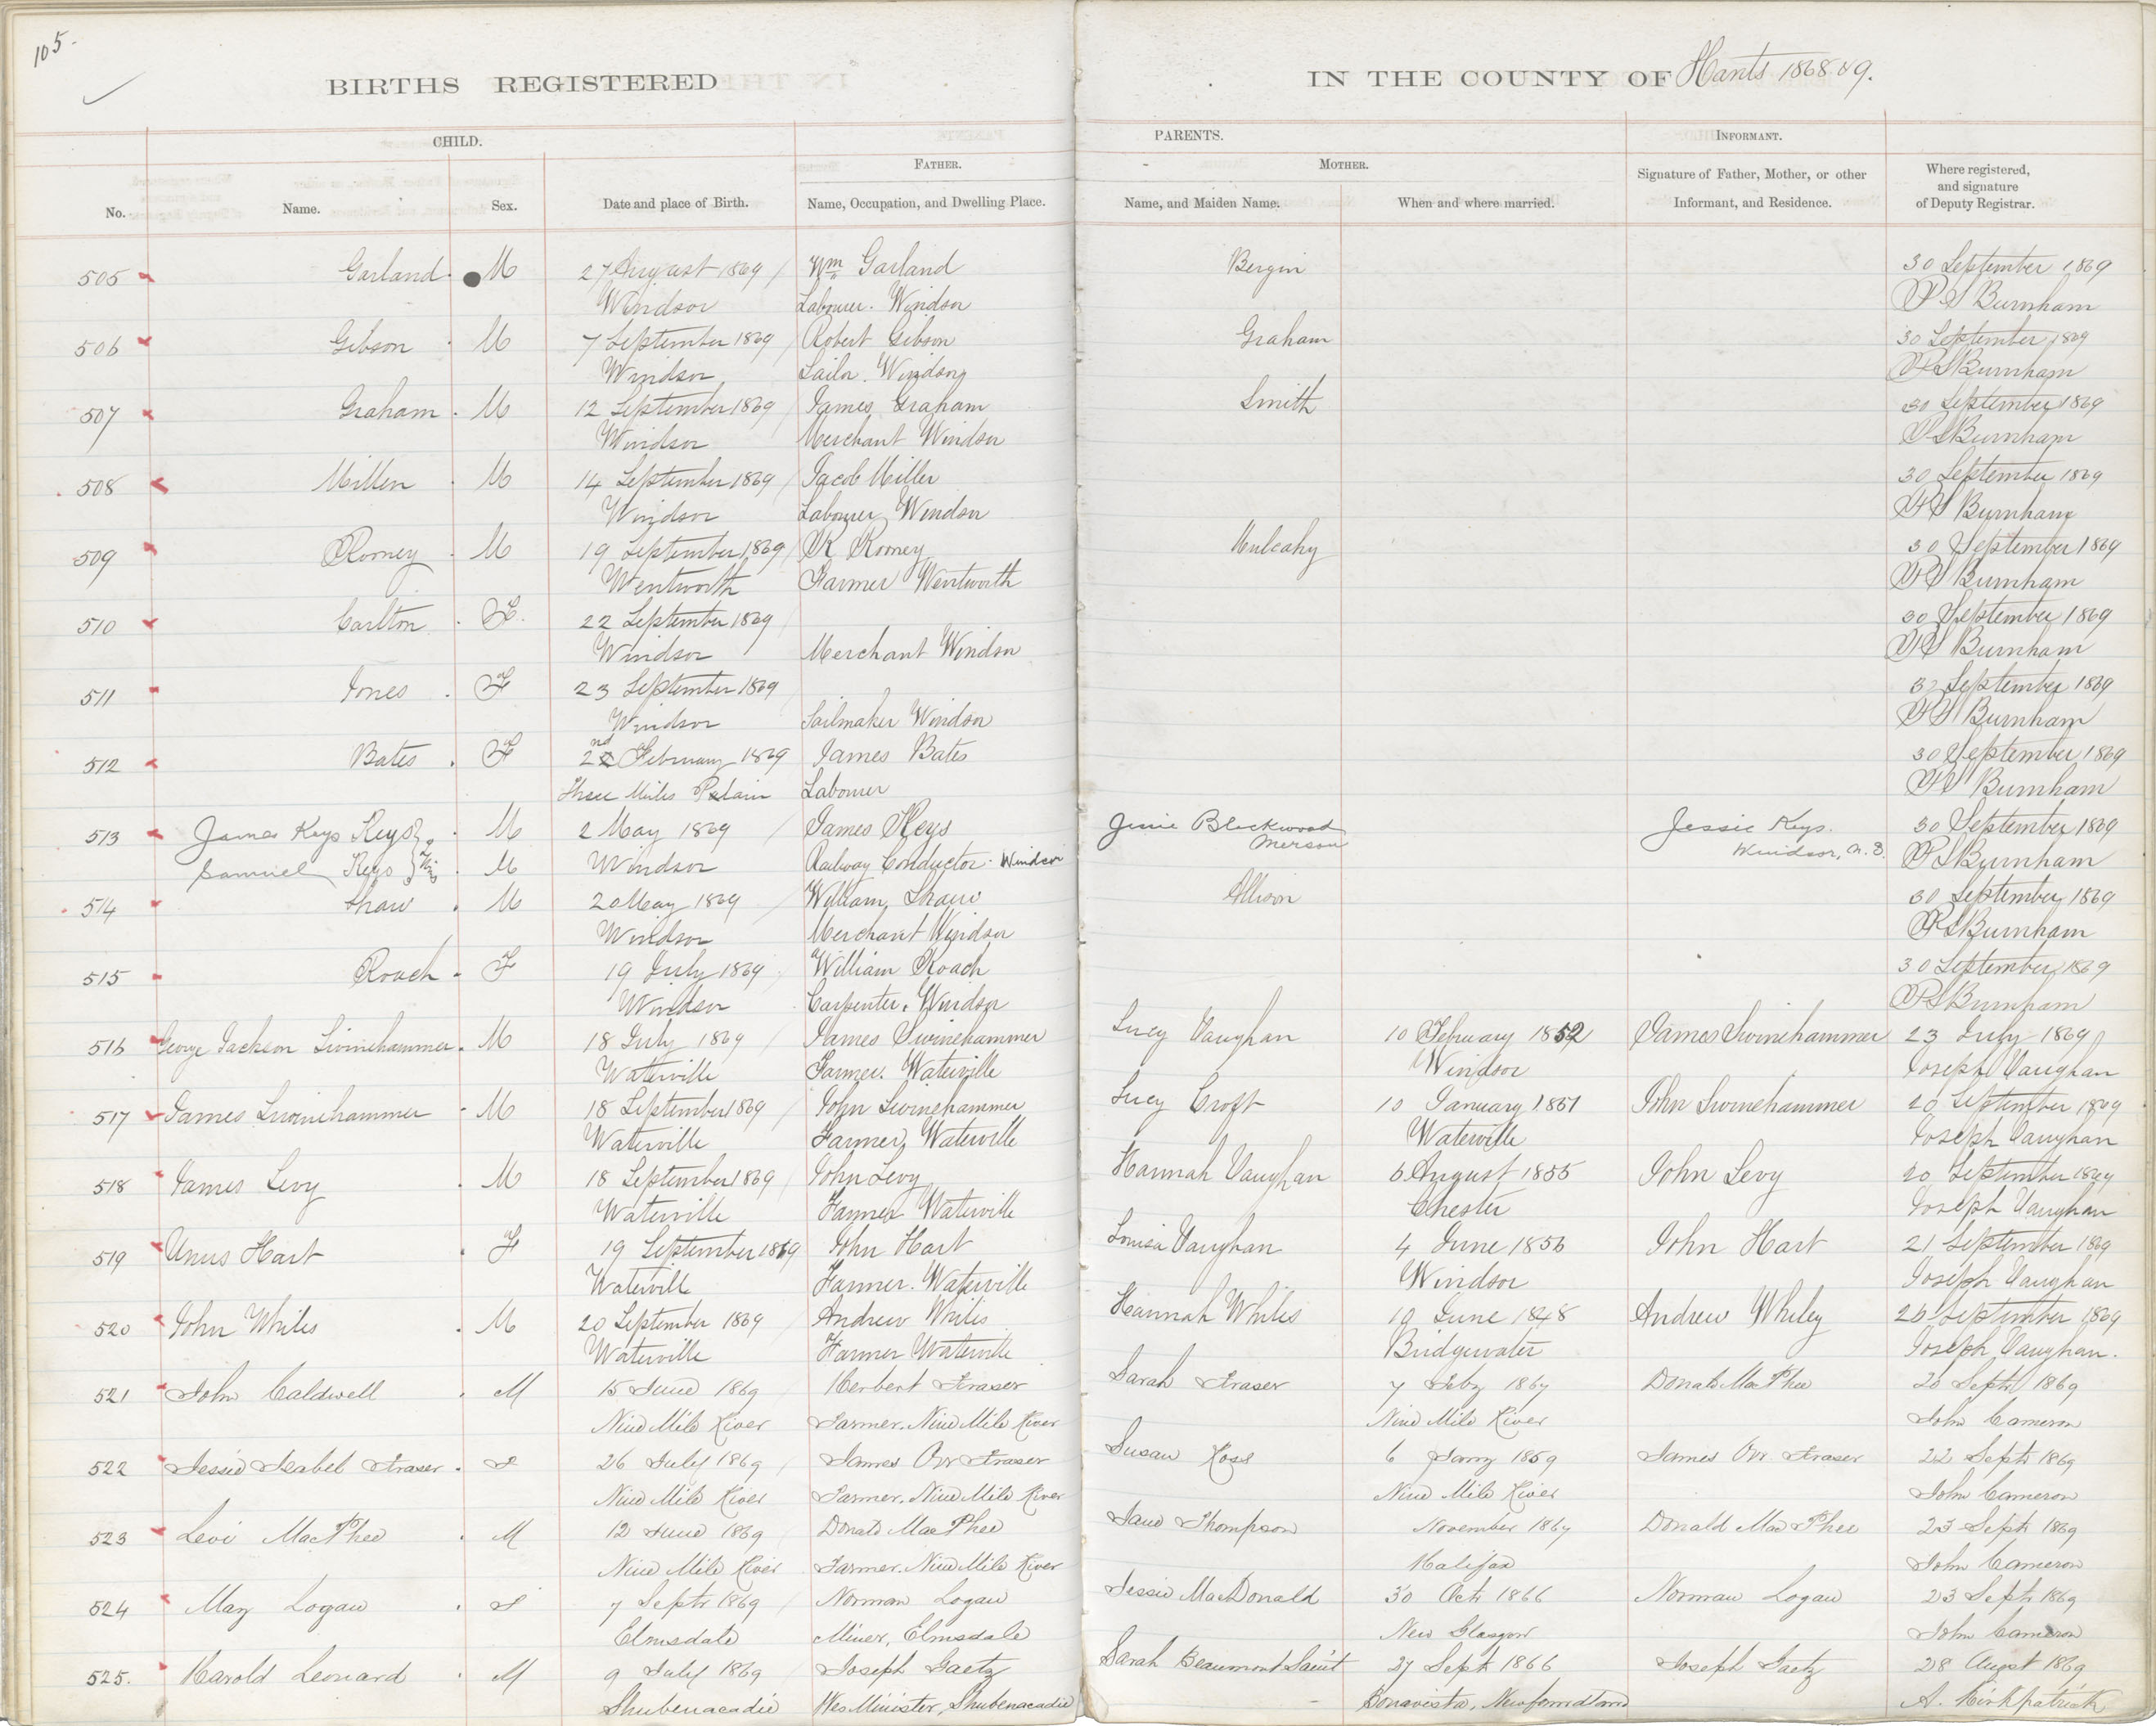 105.
BIRTHS REGISTERED IN THE COUNTY OF Hants 1868 & 9.
CHILD. PARENTS. INFORMANT.
FATHER. MOTHER.
No. Name. Sex. Date and place of Birth. Name, Occupation, and Dwelling Place. Name, and Maiden Name. When and where married. Signature of Father, Mother, or other Informant, and Residence. Where registered, and signature of Deputy Registrar.
505 Garland M 27 August 1869 Wm Garland Bergin 30 September 1869
Windsor Labourer. Windsor P S Burnham
506 Gibson M 7 September 1869 Robert Gibson Graham 30 September 1869
Windsor Sailor. Windsor P S Burnham
507 Graham M 12 September 1869 James Graham Smith 30 September 1869
Windsor Merchant Windsor P S Burnham
508 Miller M 14 September 1869 Jacob Miller 30 September 1869
Windsor Labourer Windsor P S Burnham
509 Romey M 19 September 1869 R Romey Mulcahy 30 September 1869
Wentworth Farmer Wentworth P S Burnham
510 Carlton F. 22 September 1869 30 September 1869
Windsor Merchant Windsor P S Burnham
511 Jones F 23 September 1869 30 September 1869
Windsor Sailmaker Windsor P S Burnham
512 Bates F 2nd February 1869 James Bates 30 September 1869
Three Miles Plain Labourer P S Burnham
513 James Keys Keys M 2 May 1869 James Keys Jessie Blackwood Merson Jessie Keys. 30 September 1869
Samuel Keys M Windsor Railway Conductor. Windsor Windsor, N.S. P S Burnham
514 Shaw M 20 May 1869 William Shaw Allison 30 September 1869
Windsor Merchant Windsor P S Burnham
515 Roach F 19 July 1869 William Roach 30 September 1869
Windsor Carpenter. Windsor P S Burnham
516 George Jackson Swinehammer M 18 July 1869 James Swinehammer Lucy Vaughan 10 February 1852 James Swinehammer 23 July 1869
Waterville Farmer. Waterville Windsor Joseph Vaughan
517 James Swinehammer M 18 September 1869 John Swinehammer Lucy Croft 10 January 1851 John Swinehammer 20 September 1869
Waterville Farmer, Waterville Waterville Joseph Vaughan
518 James Levy M 18 September 1869 John Levy Hannah Vaughan 6 August 1855 John Levy 20 September 1869
Waterville Farmer Waterville Chester Joseph Vaughan
519 Unus Hart F 19 September 1869 John Hart Louisa Vaughan 4 June 1856 John Hart 21 September 1869
Waterville Farmer. Waterville Windsor Joseph Vaughan
520 John Whiles M 20 September 1869 Andrew Whiles Hannah Whiles 19 June 1848 Andrew Whiley 26 September 1869
Waterville Farmer Waterville Bridgewater Joseph Vaughan.
521 John Caldwell M 15 June 1869 Herbert Fraser Sarah Fraser 7 Feby 1867 Donald MacPhee 20 Septr 1869
Nine Mile River Farmer. Nine Mile River Nine Mile River John Cameron
522 Jessie Isabel Fraser F 26 July 1869 James Orr Fraser Susan Rose 6 Jany 1859 James Orr Fraser 22 Septr 1869
Nine Mile River Farmer. Nine Mile River Nine Mile River John Cameron
523 Levi MacPhee M 12 June 1869 Donald MacPhee Jane Thompson November 1867 Donald MacPhee 23 Septr 1869
Nine Mile River Farmer. Nine Mile River Halifax John Cameron
524 May Logan F 7 Septr 1869 Norman Logan Jessie MacDonald 30 Octr 1866 Norman Logan 23 Septr 1869
Elmsdale Miner, Elmsdale New Glasgow John Cameron
525. Harold Leonard M 9 July 1869 Joseph Gaetz Sarah Beaumont Saint 27 Sept 1866 Joseph Gaetz 28 Augst 1869
Shubenacadie Wes Minister, Shubenacadie Bonavista, Newfoundland A. Kirkpatrick